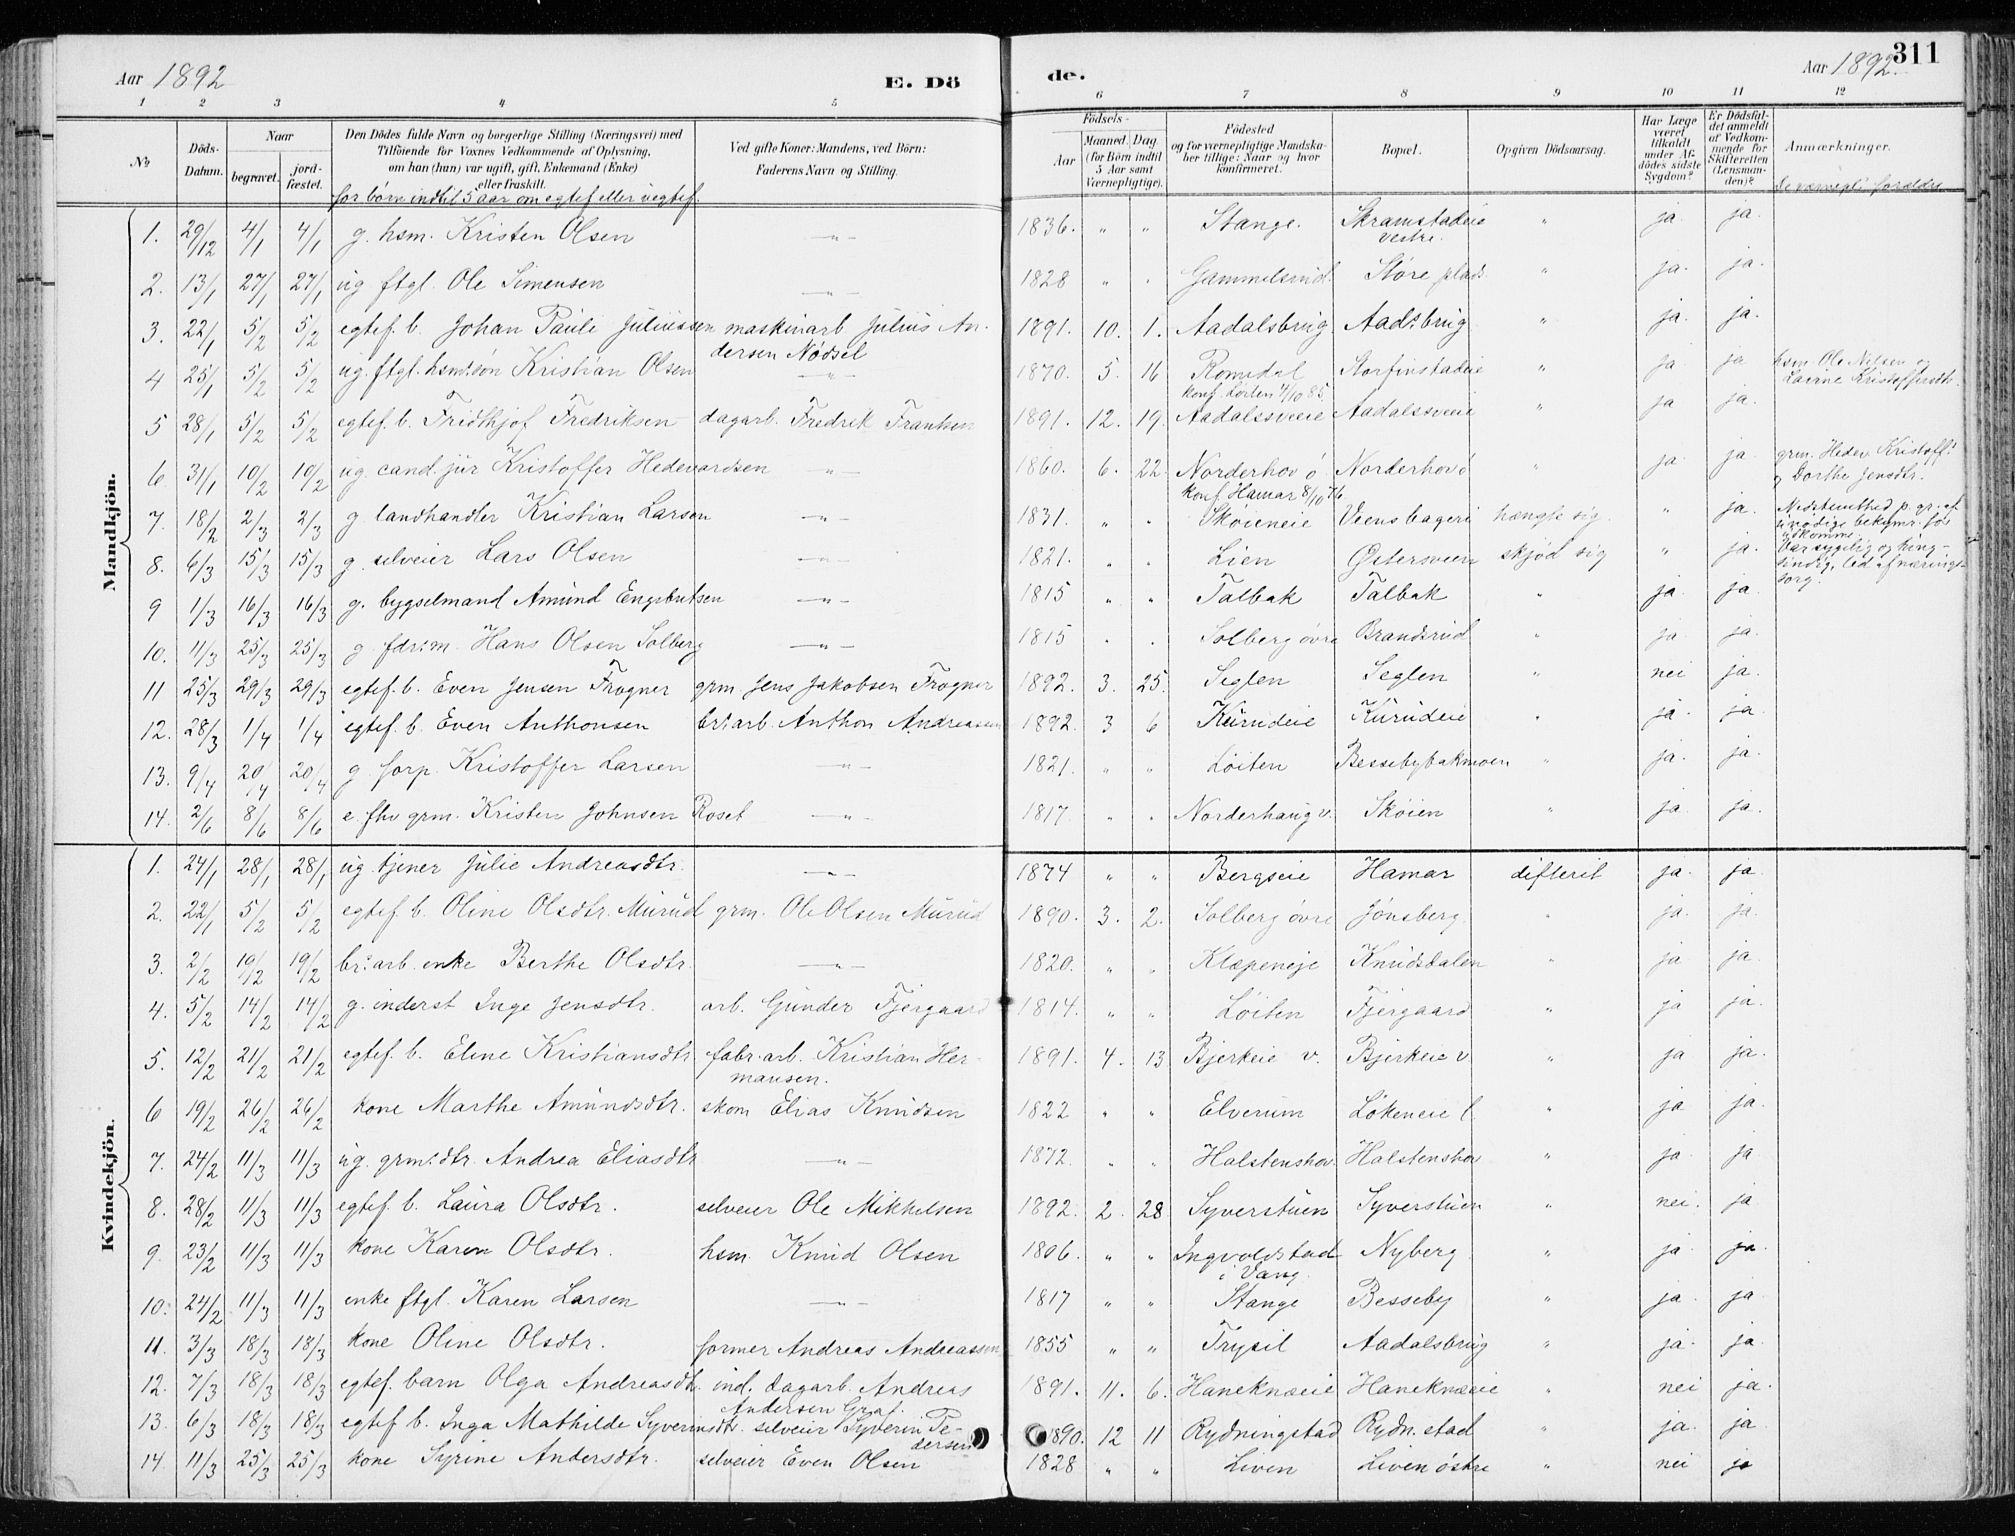 Aar 1892 E. Dö de. Aar 1892. 311
1 2 3 4 5 6 7 8 9 10 11 12
№ Döds-Datum. Naar begravet. jord-fæstet.
Den Dödes fulde Navn og borgerlige Stilling (Næringsvei) med
Tilföiende for Voxnes Vedkommende af Oplysning,
om han (hun) var ugift, gift, Enkemand (Enke)
eller fraskilt.
for børn indtil 5 aar om egtef eller uegtef.
Ved gifte Koner: Mandens, ved Börn:
Faderens Navn og Stilling.
Födsels-
Aar Maaned. Dag.
(for Börn indtil 5 Aar samt Værnepligtige).
Födested
og for værnepligtige Mandska-
ber tillige: Naar og hvor
konfirmeret.
Bopæl.
Opgiven Dödsaarsag.
Har Læge været tilkaldt under Af-dödes sidste Sygdom?
Er Dödsfal-det anmeldt af Vedkom-mende for Skifteretten (Lensman-den)?
Anmærkninger.
Mandkjön.
1. 29/12 4/1 4/1 g. hsm. Kristen Olsen —"— 1836. " " Stange. Skramstadeie vestre. " ja. ja.
2. 13/1 27/1 27/1 ug ftgl. Ole Simensen —"— 1828 " " Støre plads " ja. ja.
3. 22/1 5/2 5/2 egtef. b. Johan Paule Juliussen maskinarb Julius An-
dersen Nødsel 1891. 10. 1. Aadalsbrug Aads.brug " ja. ja.
4 25/1 5/2 5/2 ug. ftgl. hsmdsøn Kristian Olsen —"— 1870. 5. 16 Romedal Storfinstadeie " ja ja hsm. Ole Nilsen og
konf. Løiten 4/10 85. Larine Kristoffersdtr.
5 28/1 5/2 5/2 egtef. b. Fridthjof Fredriksen dagarb. Fredrik Frantsen 1891. 12. 19. Aadalssveie Aadalssveie " ja ja.
6. 31/1 10/2 10/2 ug. cand. jur Kristoffer Hedevardsen —"— 1860. 6. 22. Norderhov ø Norderhov ø " ja. ja. grm. Hedev. Kristoff.
konf. Hamar 8/10 76. og Dorthe Jensdtr.
7. 18/2 2/3 2/3 g. landhandler Kristian Larsen —"— 1831. " " Skøieneie Veensbageri hængte sig. " ja. Nedstemthed p. gr. af
unødige bekymr. for
udkomme.
8. 6/3 15/3 15/3 g. selveier Lars Olsen —"— 1821. " " Lien Østersveen skjød sig " ja. Var sygelig og ting-
sindig, led af nærings-
sorg.
9 1/3 16/3 16/3 g. bygselmand Amund Engebretsen —"— 1815 " " Talbak Talbak " ja. ja.
10. 11/3 25/3 25/3 g. fdr:m. Hans Olsen Solberg —"— 1815 " " Solberg øvre Brandsrud " ja ja.
11 25/3 29/3 29/3 egtef. b. Even Jensen Frogner grm. Jens Jakobsen Frogner 1892. 3. 25. Seglen Seglen " nei ja.
12. 28/3 1/4 1/4 egtef. b. Even Anthonsen br:arb. Anthon Andreasen 1892. 3 6 Kurudeie Kurudeie " ja. ja.
13. 9/4 20/4 20/4 g. forp. Kristoffer Larsen —"— 1821. " " Løiten Bessebybakmoen " ja. ja.
14. 2/6 8/6 8/6 e. fhv grm. Kristen Johnsen Roset —"— 1817. " " Norderhaug v. Skøien " ja ja.
Kvindekjön.
1. 24/1 28/1 28/1 ug. tjener Julie Andreasdtr. —"— 1874 " " Bergseie Hamar difterit ja. ja.
2. 22/1 5/2 5/2 egtef. b. Oline Olsdtr. Murud grm. Ole Olsen Murud 1890. 3. 2. Solberg øvre Jønsberg. " ja. ja.
3. 2/2 19/2 19/2 br:arb. enke Berthe Olsdtr. —"— 1820. " " Klæpeneje Knudsdalen " ja ja.
4. 5/2 14/2 14/2 g. inderst Inge Jensdtr. arb. Gunder Fjergaard 1814. " " Løiten Fjergaard " ja ja.
5. 12/2 21/2 21/2 egtef. b. Eline Kristiansdtr. fabr. arb. Kristian Her-
mansen. 1891. 4. 13 Bjerkeie v. Bjerkeie v " ja ja.
6 19/2 26/2 26/2 kone Marthe Amundsdtr. skom Elias Knudsen 1822 " " Elverum Løkeneie l. " ja ja.
7. 24/2 11/3 11/3 ug. grm:dtr. Andrea Eliasdtr —"— 1872. " " Halstenshov. Halstenshov " ja. ja
8. 28/2 11/3 11/3 egtef. b. Laura Olsdtr. selveier Ole Mikkelsen 1892. 2. 28 Syverstuen Syverstuen " nei. ja
9. 23/2 11/3 11/3 kone Karen Olsdtr. hsm. Knud Olsen 1806. " " Ingvoldstad Nyberg. " ja. ja.
i Vang.
10. 24/2 11/3 11/3 enke ftgl. Karen Larsen —"— 1817 " " Stange Besseby " ja. ja.
11. 3/3 18/3 18/3 kone Oline Olsdtr. former Andreas Andreassen 1855 " " Trysil Aadalsbrug " ja. ja.
12. 7/3 18/3 18/3 egtef. barn Olga Andreasdtr. ind. dagarb. Andreas
Andersen Graf. 1891. 11. 6. Haneknæeie Haneknæeie " nei ja.
13. 6/3 18/3 18/3 egtef. b. Inga Mathilde Syverinsdtr. selveier Syverin Pe-
dersen 1890. 12 11 Rydningstad Rydn. stad " ja. ja.
14. 11/3 25/3 25/3 kone Syrine Andersdtr. selveier Even Olsen 1828 " " Liven Liven østre " nei ja